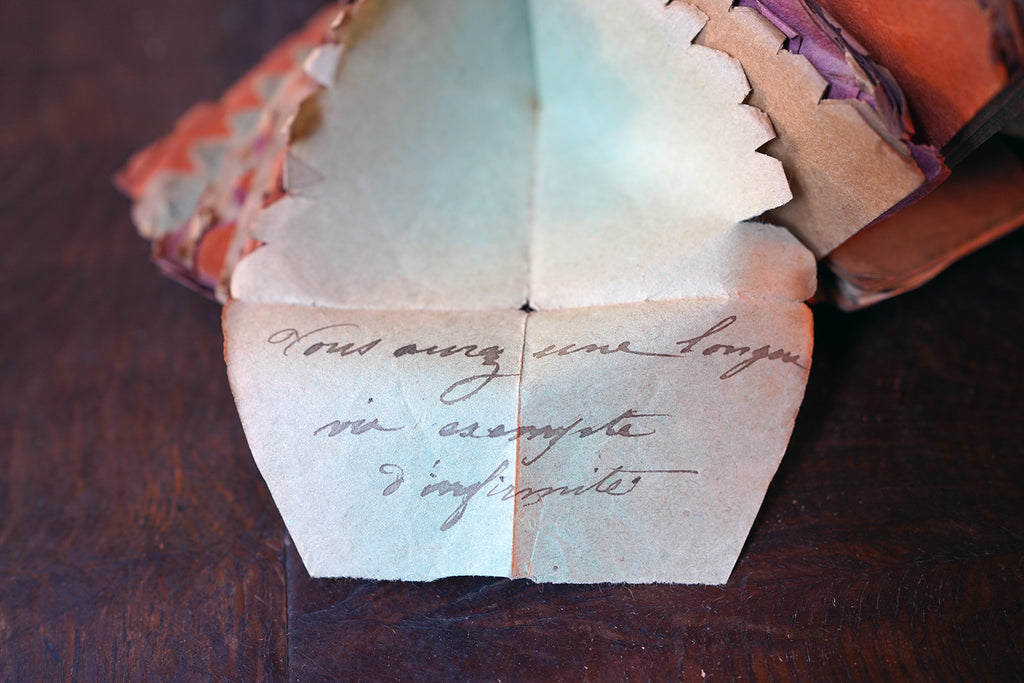 Vous aurez une longue
vie exempte
d'infirmités